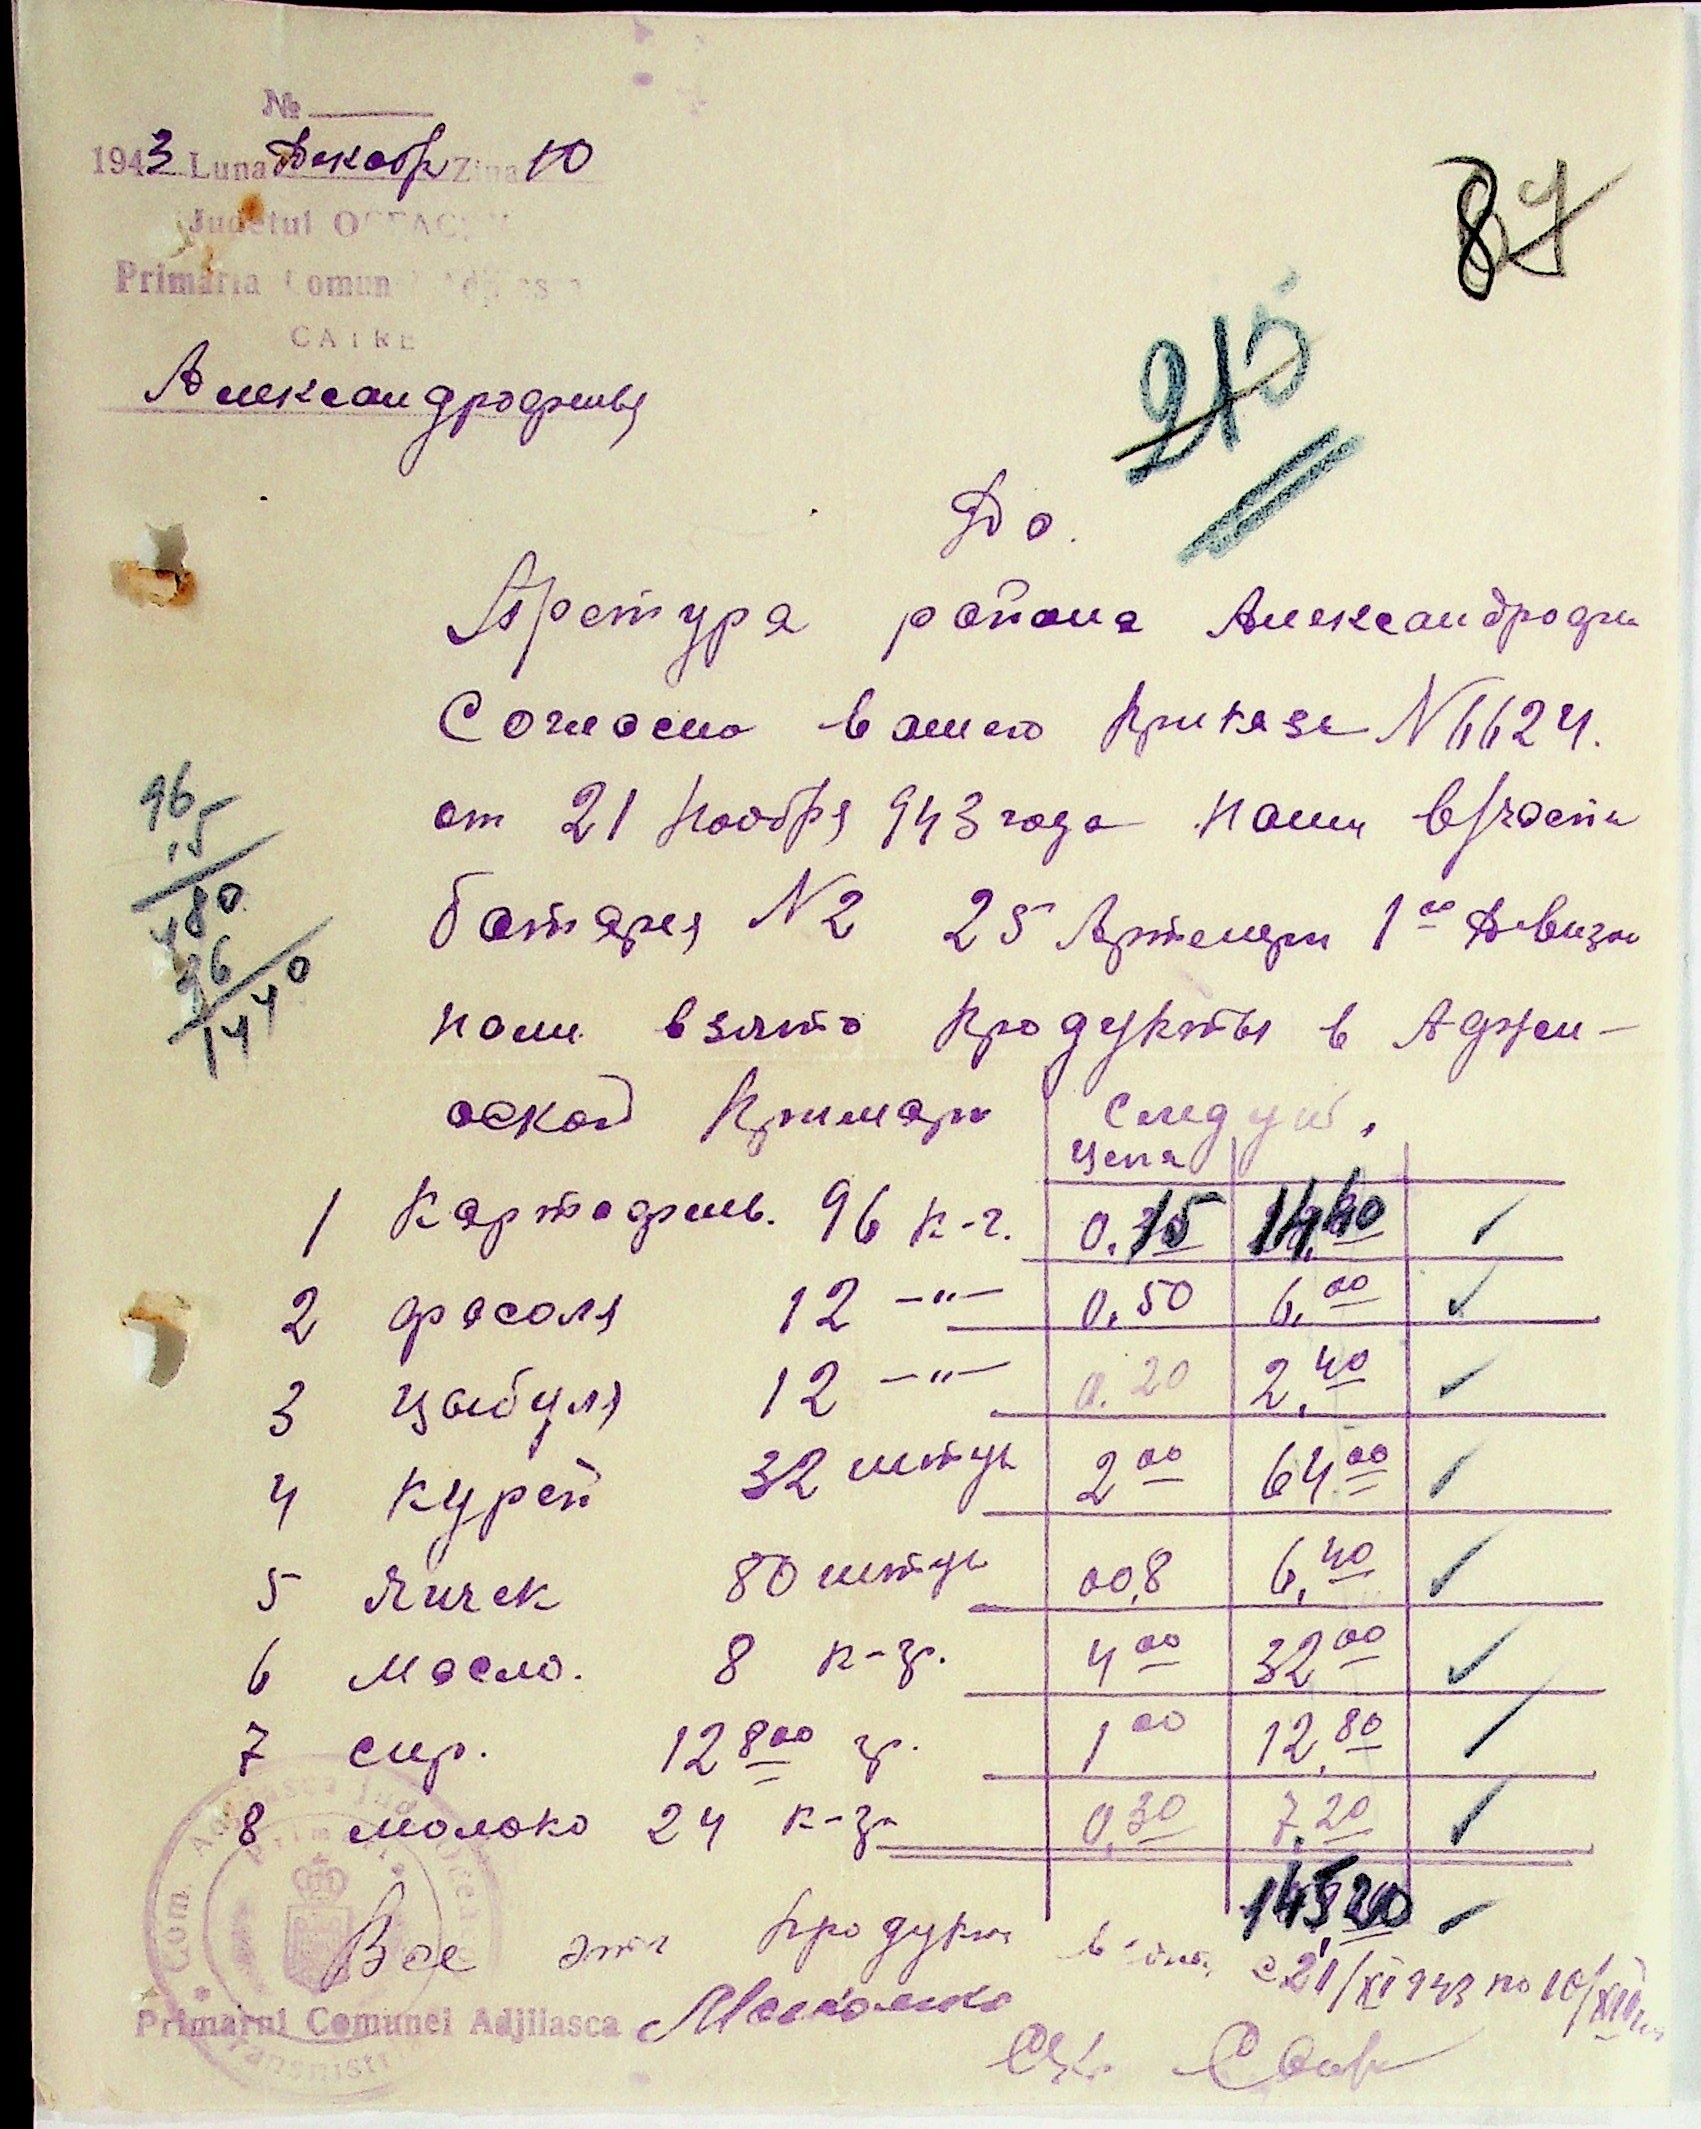 №
1943 Luna Декабр Ziua 10
Judetul OCEACOV
Primăria Comunei Adjiasca
CATRE
Александродршь
87
215
До.
Претура района Александродри
Согласно вашего приказа N 6624.
от 21 Ноября 943 года нами вчасти
батарея N2 25 Артелери 1го Дивизи
нами взято продукты в Аджи-
аской Примари следую.
цена
1 Картофель. 96 к-г. 0.15 14,40
2 фасоля 12 —"— 0.50 6.00
3 цыбуля 12 —"— 0.20 2.40
4 Курей 32 штук 2 00 64 00
5 Яичек 80 штук 00,8 6,40
6 Масло. 8 к-гр. 4 00 32 00
7 сир. 12 800 гр. 1 00 12,80
8 молоко 24 к-гр 0,30 7,20
145,20
Все эти продукти с 21/XI 943 по 10/XII
Primarul Comunei Adjiiasca
Com. Adjiiasca Jud. Oceacov
Transnistria
96
15
480
96
1440